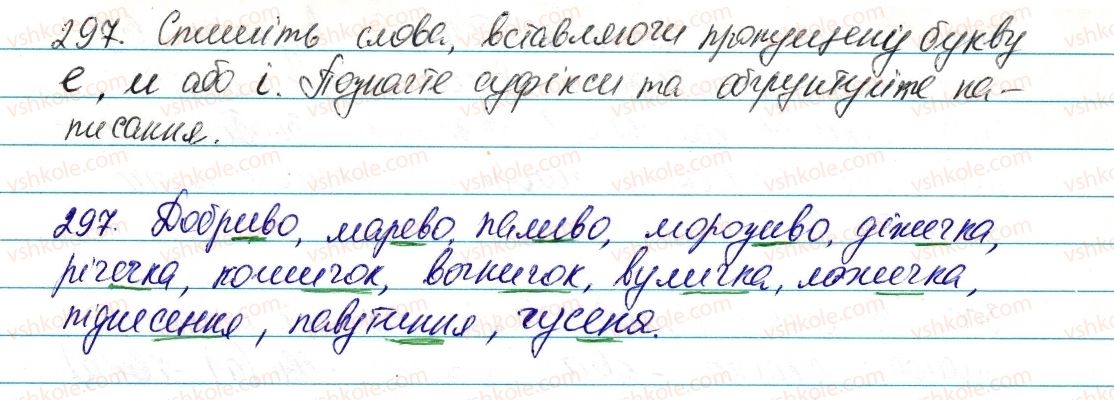 297. Спишіть слова, вставляючи пропущену букву
е, и або і. Позначте суфікси та обґрунтуйте на-
писання.
297. Добриво, марево, паливо, морозиво, діжечка,
річечка, кошичок, вогничок, вуличка, ложечка,
піднесення, павутиння, гусеня.